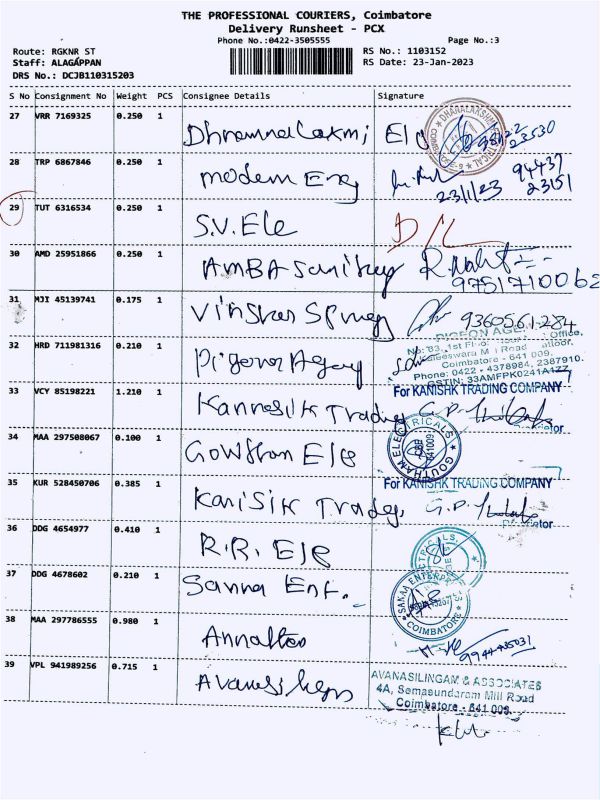 THE PROFESSIONAL COURIERS, Coimbatore
Delivery Runsheet - PCX
Phone No.:0422-3505555 Page No.:3
Route: RGKNR ST RS No.: 1103152
Staff: ALAGAPPAN RS Date: 23-Jan-2023
DRS No.: DCJB110315203
S No Consignment No Weight PCS Consignee Details Signature
27 VRR 7169325 0.250 1
28 TRP 6867846 0.250 1 Modern Eng
94437
23/1/23 23151
29 TUT 6316534 0.250 1 S.V. Ele D/L
30 AMD 25951866 0.250 1 AMBA Sanitary
9751710062
31 MJI 45139741 0.175 1 9360561284
PIGEON AGE
No: 83, 1st Office,
32 HRD 711981316 0.210 1 Road
Coimbatore - 641 009.
Phone: 0422 - 4378984, 2387910.
GSTIN: 33AMFPK0241A1ZZ
33 VCY 85198221 1.210 1 For KANISHK TRADING COMPANY
34 MAA 297508067 0.100 1 Gowtham Ele
GOUTHAM ELECTRICALS
35 KUR 528450706 0.385 1 Kanisik Trading For KANISHK TRADING COMPANY
36 DDG 4654977 0.410 1 R.R. Ele
37 DDG 4678602 0.210 1 Sanna Ent. SAKAA ENTERPRISES
COIMBATORE
38 MAA 297786555 0.980 1
39 VPL 941989256 0.715 1 AVANASILINGAM & ASSOCIATES
4A, Somasundaram Mill Road
Coimbatore - 641 009.